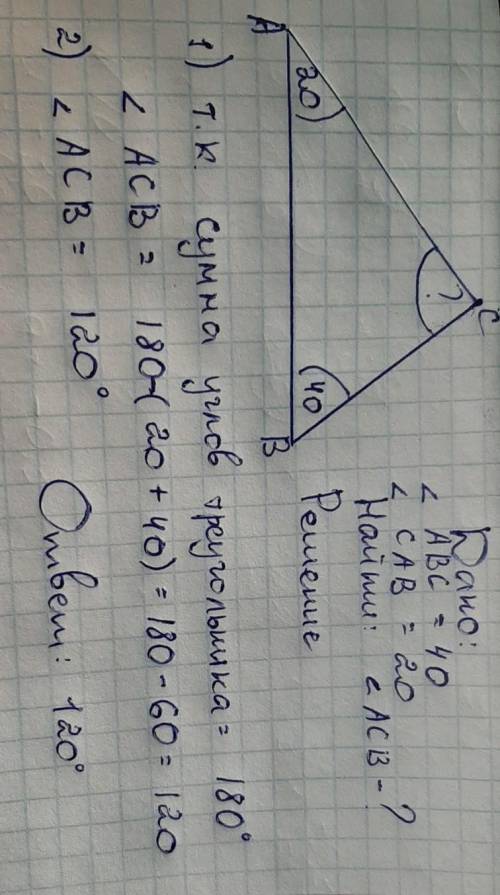 C
?
A
20
40
B
Дано:
∠ ABC = 40
∠ CAB = 20
Найти: ∠ ACB - ?
Решение
1) т.к. сумма углов треугольника = 180°
∠ ACB = 180-(20+40) = 180-60 = 120
2) ∠ ACB = 120°
Ответ: 120°